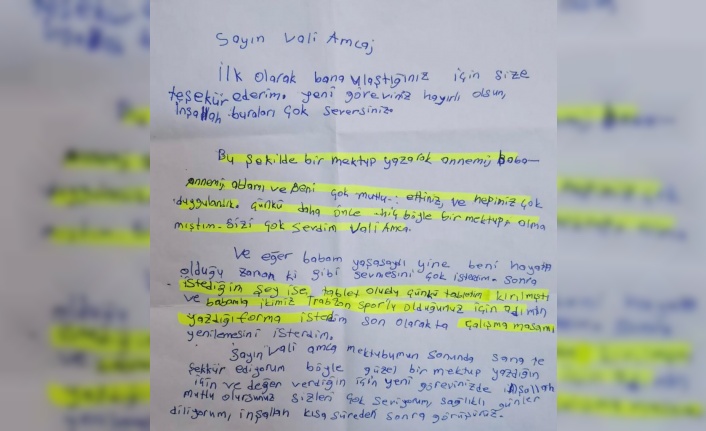 Sayın Vali Amcaj
İlk olarak bana ulaştığınız için size
teşekür ederim. yeni göreviniz hayırlı olsun,
İnşallah buraları çok seversiniz.
Bu şekilde bir mektup yazarak annemi,
annemi, ablamı ve Beni çok mutlu ettiniz, ve hepimiz çok
duygulandık. çünkü daha önce hiç böyle bir mektup olma
mıştım. Sizi çok Sevdim Vali Amca.
Ve eğer babam yaşasaydı yine beni hayatta
olduğu zaman ki gibi sevmesini çok isterdim. Sonra
istediğin şey ise tablet oludu çünkü tabletim kırılmıştı
ve babamla ikimiz Trabzon Spor'lu olduğumuz için adımın
yazdığı forma istedim son olarakta çalışma masamı
yenilemesini isterdim.
Sayın Vali amca mektubumun sonunda sana te
şekkür ediyorum böyle güzel bir mektup yazdığın
için ve değer verdiğin için yeni görevinizde inşallah
mutlu olursunuz sizleri çok seviyorum, sağlıklı günler
diliyorum, inşallah kısa süreden sonra görüşürüz.